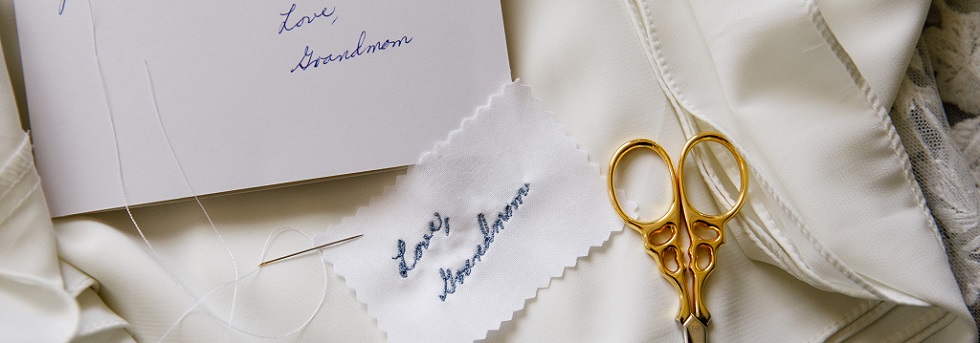 Love,
Grandmom
Love,
Grandmom